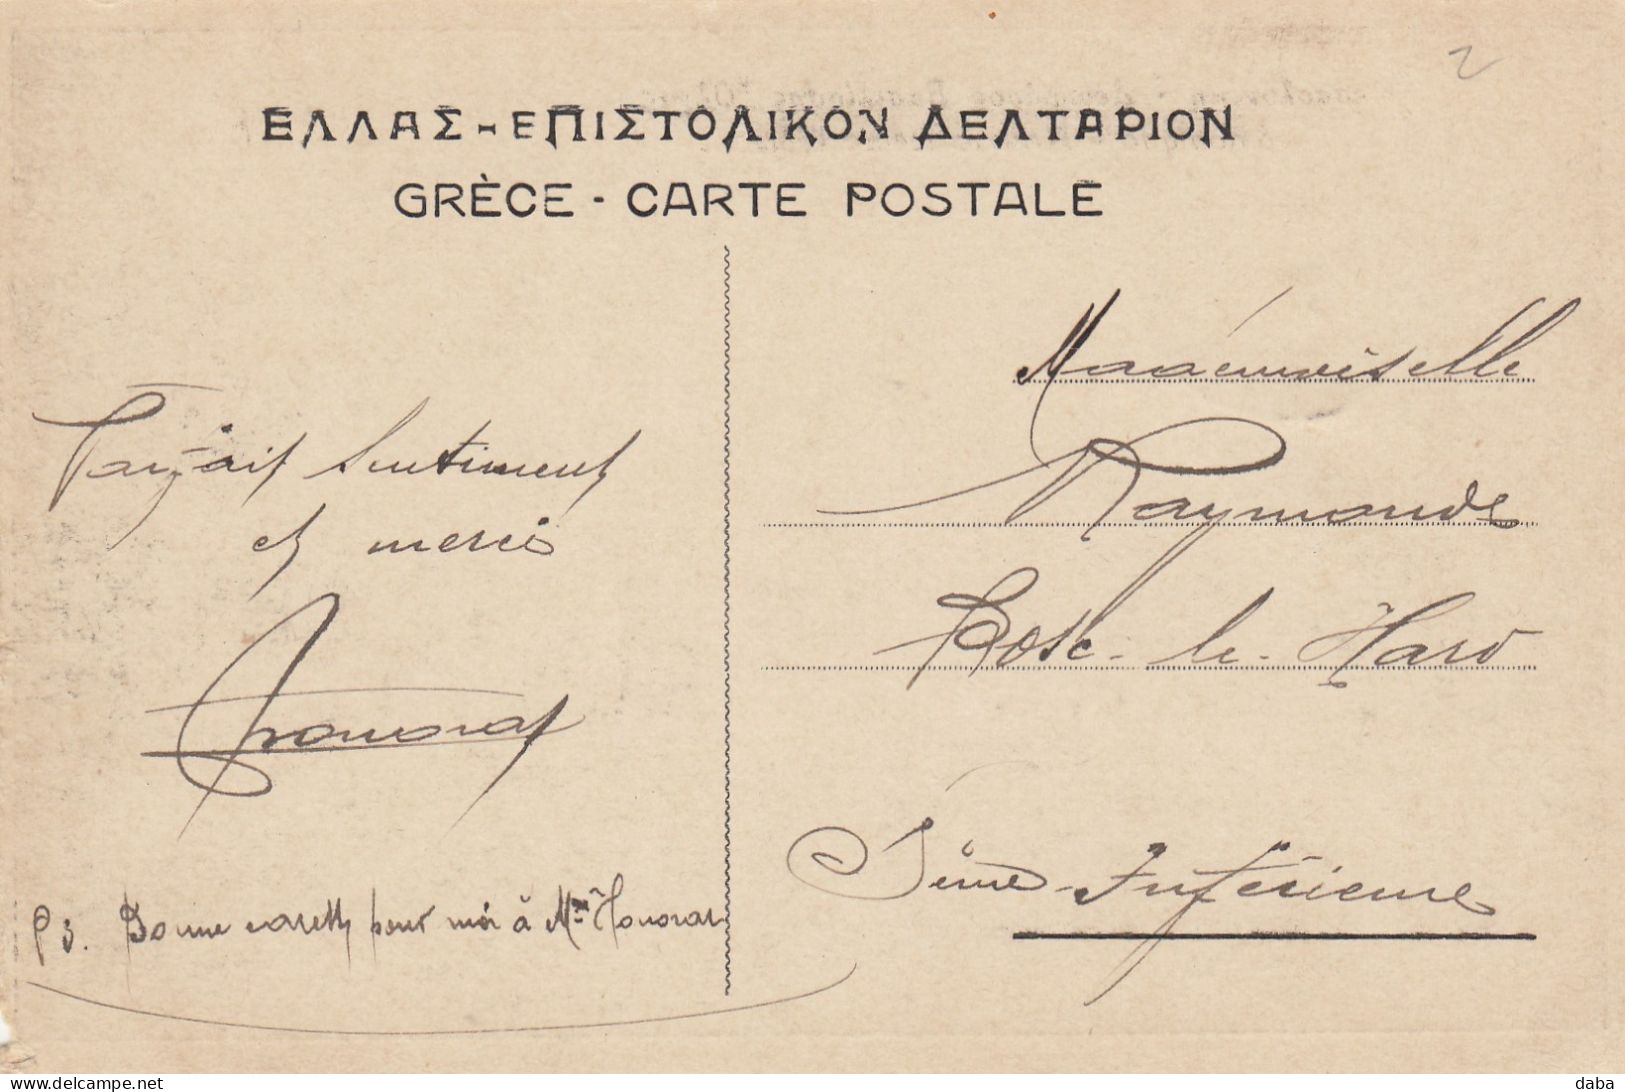 2
ΕΛΛΑΣ - ΕΠΙΣΤΟΛΙΚΟΝ ΔΕΛΤΑΡΙΟΝ
GRÈCE - CARTE POSTALE
Parfait sentiment
et merci
Honorat
PS. Bonne caresse pour moi à Mme Honorat
Mademoiselle
Raymonde
Bosc-le-Hard
Seine-Inférieure
https://www.delcampe.net
daba